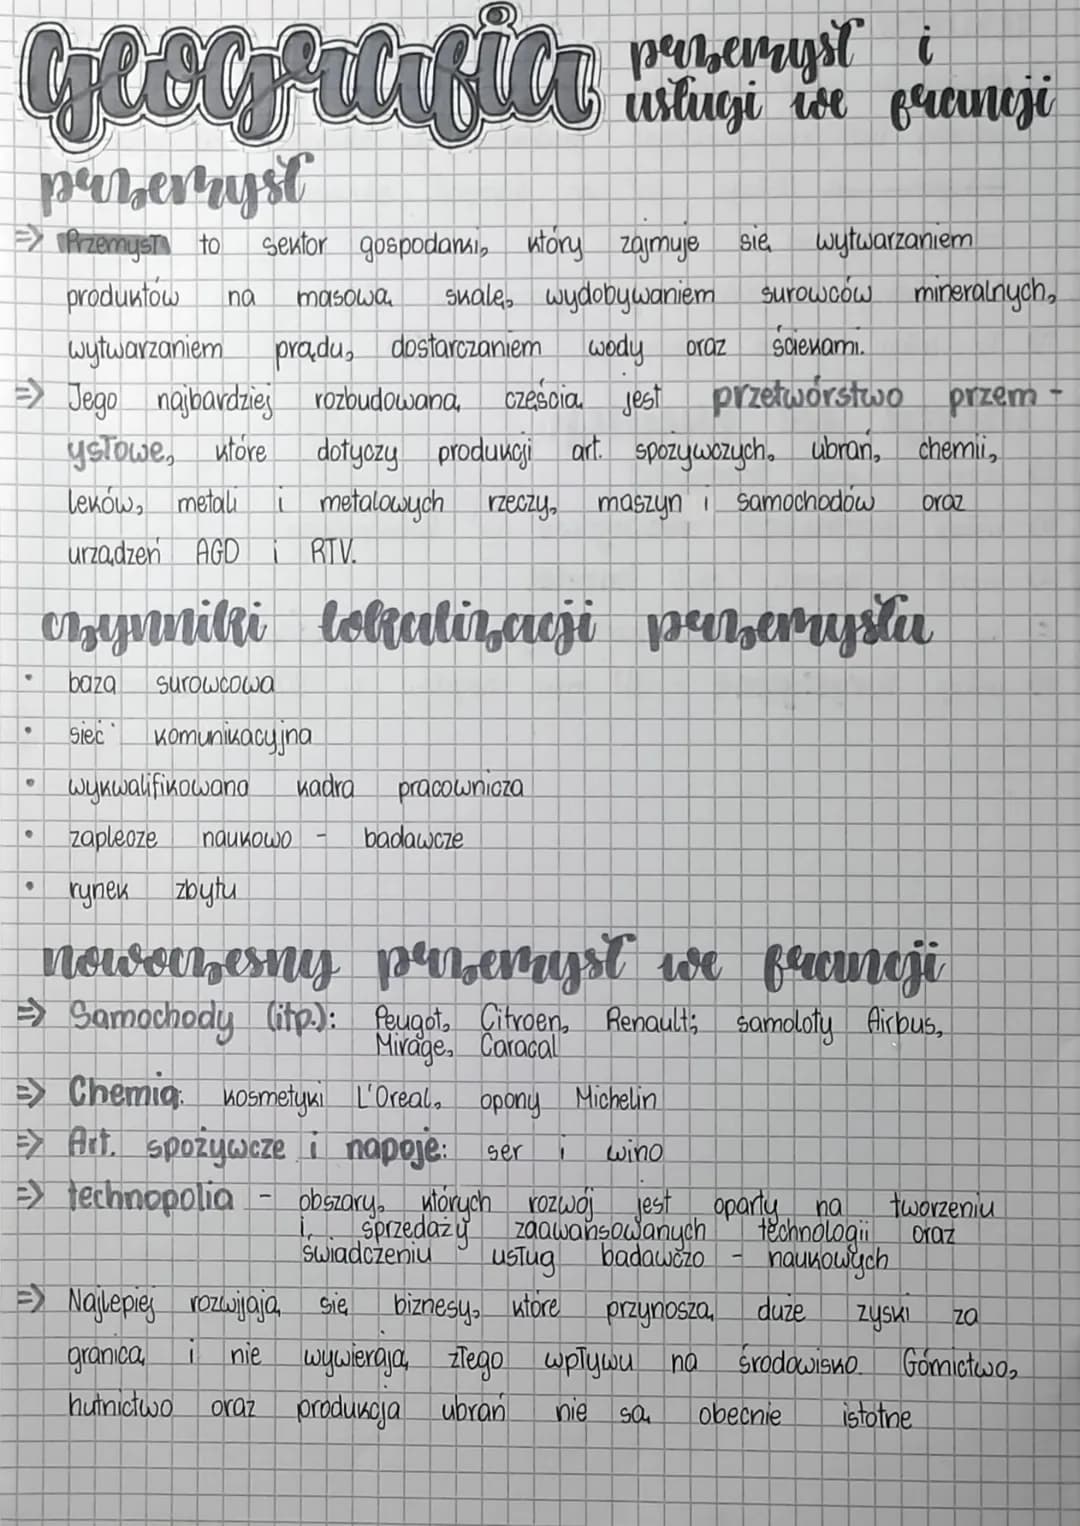 Geografia przemysł i
usługi we francji
przemysł
=> Przemysł to sektor gospodarki, który zajmuje się wytwarzaniem
produktów na masową skalę, wydobywaniem surowców mineralnych,
wytwarzaniem prądu, dostarczaniem wody oraz ściekami.
=> Jego najbardziej rozbudowaną częścią jest przetwórstwo przem -
ysłowe, które dotyczy produkcji art. spożywczych, ubrań, chemii,
leków, metali i metalowych rzeczy, maszyn i samochodów oraz
urządzeń AGD i RTV.
czynniki lokalizacji przemysłu
• baza surowcowa
• sieć komunikacyjna
• wykwalifikowana kadra pracownicza
• zaplecze naukowo - badawcze
• rynek zbytu
nowoczesny przemysł we francji
=> Samochody (itp.): Peugot, Citroen, Renault; samoloty Airbus,
Mirage, Caracal
=> Chemia: kosmetyki L'Oreal, opony Michelin
=> Art. spożywcze i napoje: ser i wino
=> technopolia - obszary, których rozwój jest oparty na tworzeniu
i sprzedaży zaawansowanych technologii oraz
świadczeniu usług badawczo - naukowych
=> Najlepiej rozwijają się biznesy, które przynoszą duże zyski za
granicą i nie wywierają złego wpływu na środowisko. Górnictwo,
hutnictwo oraz produkcja ubrań nie są obecnie istotne